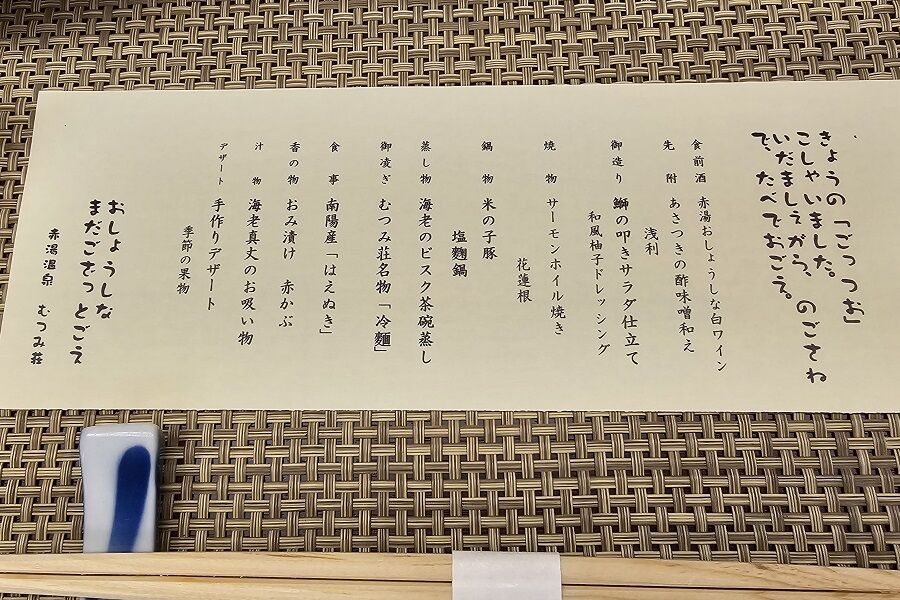 きょうの「ごっつお」
こしゃいました。のごさね
いだましえがら、
で、たべでおごえ。
食前酒 赤湯おしょうしな白ワイン
先附 あさつきの酢味噌和え
浅利
御造り 鰤の叩きサラダ仕立て
和風柚子ドレッシング
焼物 サーモンホイル焼き
花蓮根
鍋物 米の子豚
塩麹鍋
蒸し物 海老のビスク茶碗蒸し
御凌ぎ むつみ荘名物「冷麺」
食事 南陽産「はえぬき」
香の物 おみ漬け 赤かぶ
汁物 海老真丈のお吸い物
デザート 手作りデザート
季節の果物
おしょうしな
まだござっとごえ
赤湯温泉 むつみ荘